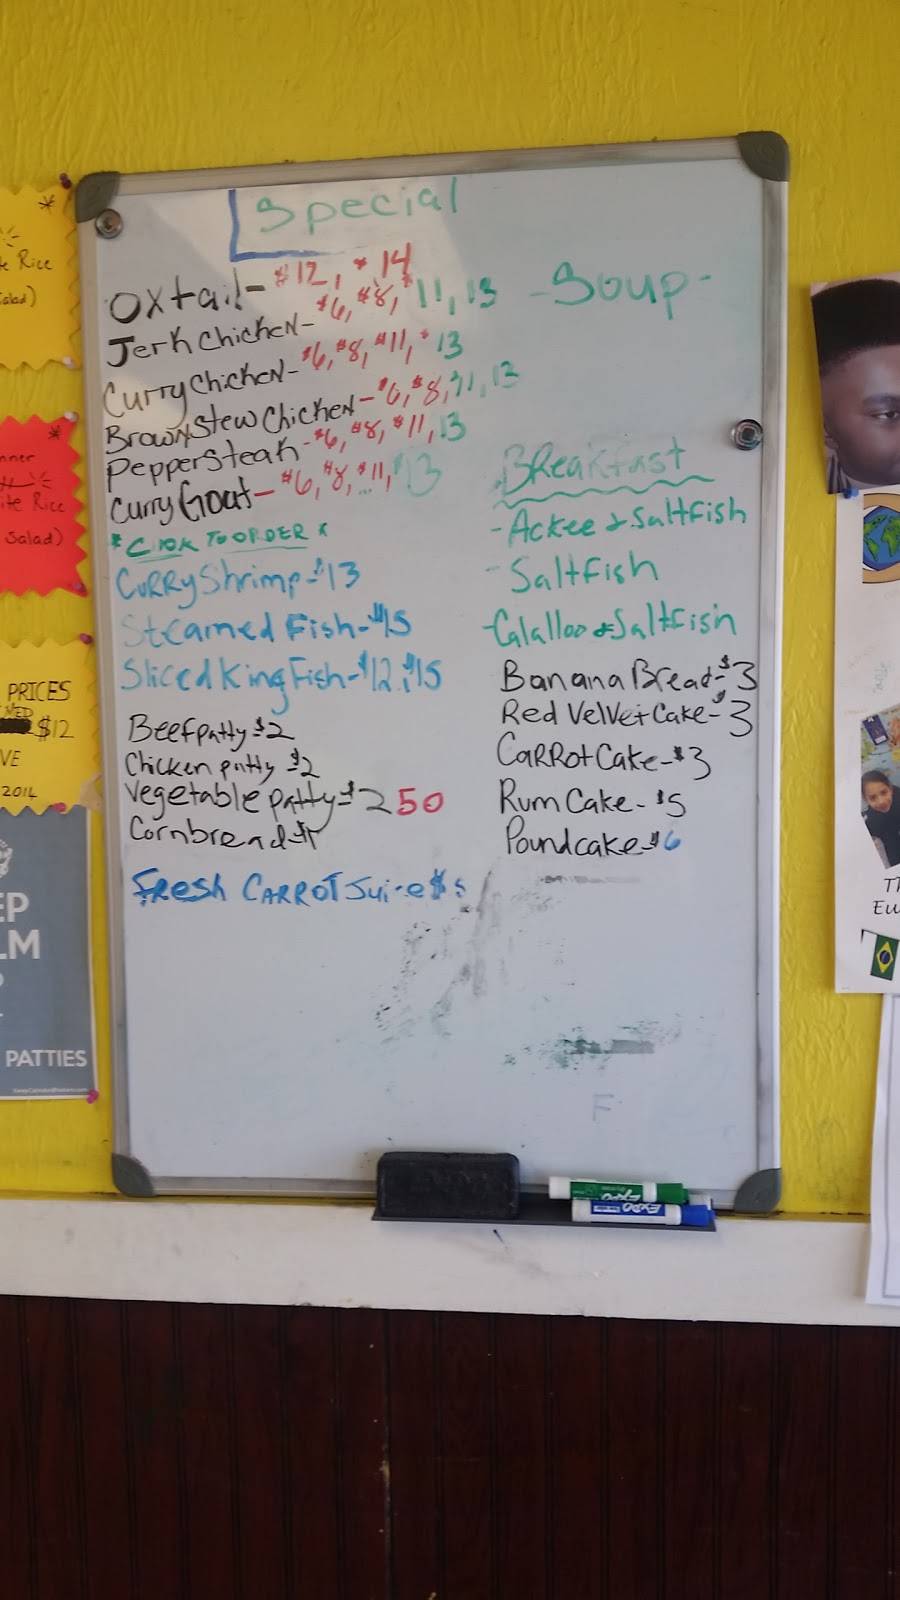 Special
Oxtail- $12, $14
Jerk Chicken- $6, $8, $11, 13
Curry Chicken- $6, $8, $11, $13
Brown Stew Chicken- $6, $8, 11, 13
Pepper Steak- $6, $8, $11, 13
Curry Goat- $6, $8, $11, $13
* COOK TO ORDER *
Curry Shrimp- $13
Steamed Fish- $15
Sliced King Fish- $12, $15
Beef patty $2
Chicken patty $2
Vegetable patty- $2 50
Cornbread $1
Fresh Carrot Juice $5
-Soup-
Breakfast
- Ackee & Saltfish
- Saltfish
- Calalloo & Saltfish
Banana Bread- $3
Red Velvet Cake- $3
Carrot Cake- $3
Rum Cake- $5
Poundcake $6
F
EXPO
EXPO
*
Rice
Salad)
*
nner
ite Rice
Salad)
PRICES
$12
VE
2014
EP
LM
PATTIES
Th
Eu